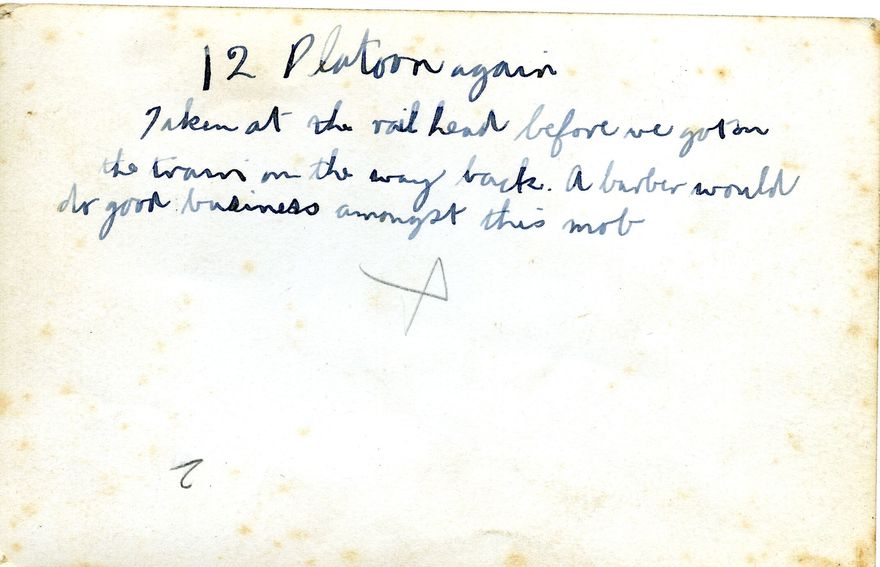 12 Platoon again
Taken at the rail head before we got on
the train on the way back. A barber would
do good business amongst this mob